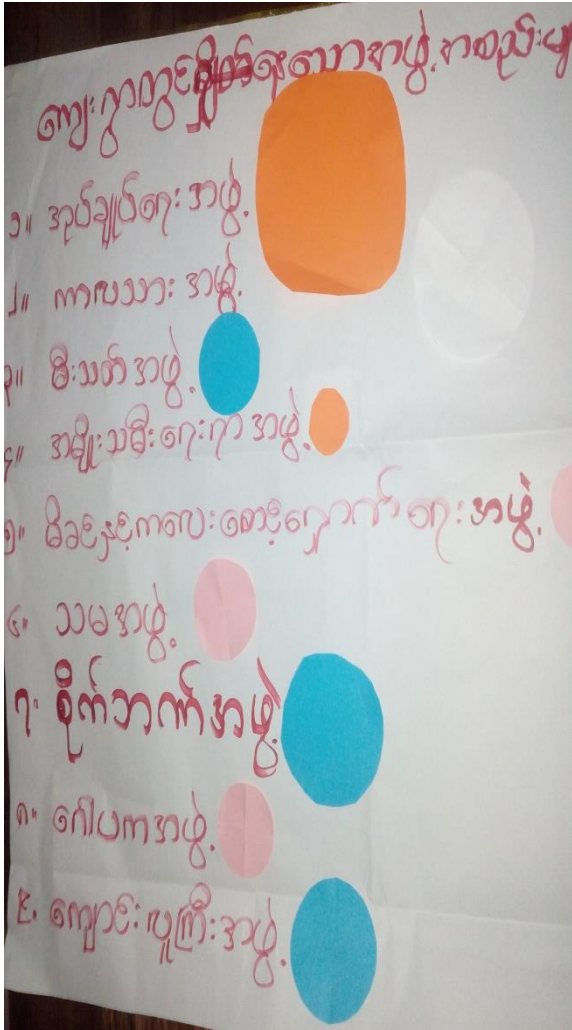 ကျေးရွာတွင်ရှိနေသောအဖွဲ့အစည်းမျ
၁။ အုပ်ချုပ်ရေးအဖွဲ့
၂။ ကာလသားအဖွဲ့
၃။ မီးသတ်အဖွဲ့
၄။ အမျိုးသမီးရေးရာအဖွဲ့
၅။ မိခင်နှင့်ကလေးစောင့်ရှောက်ရေးအဖွဲ့
၆။ သမအဖွဲ့
၇။ စိုက်ဘဏ်အဖွဲ့
၈။ ဂေါပကအဖွဲ့
၉. ကျောင်းလူကြီးအဖွဲ့